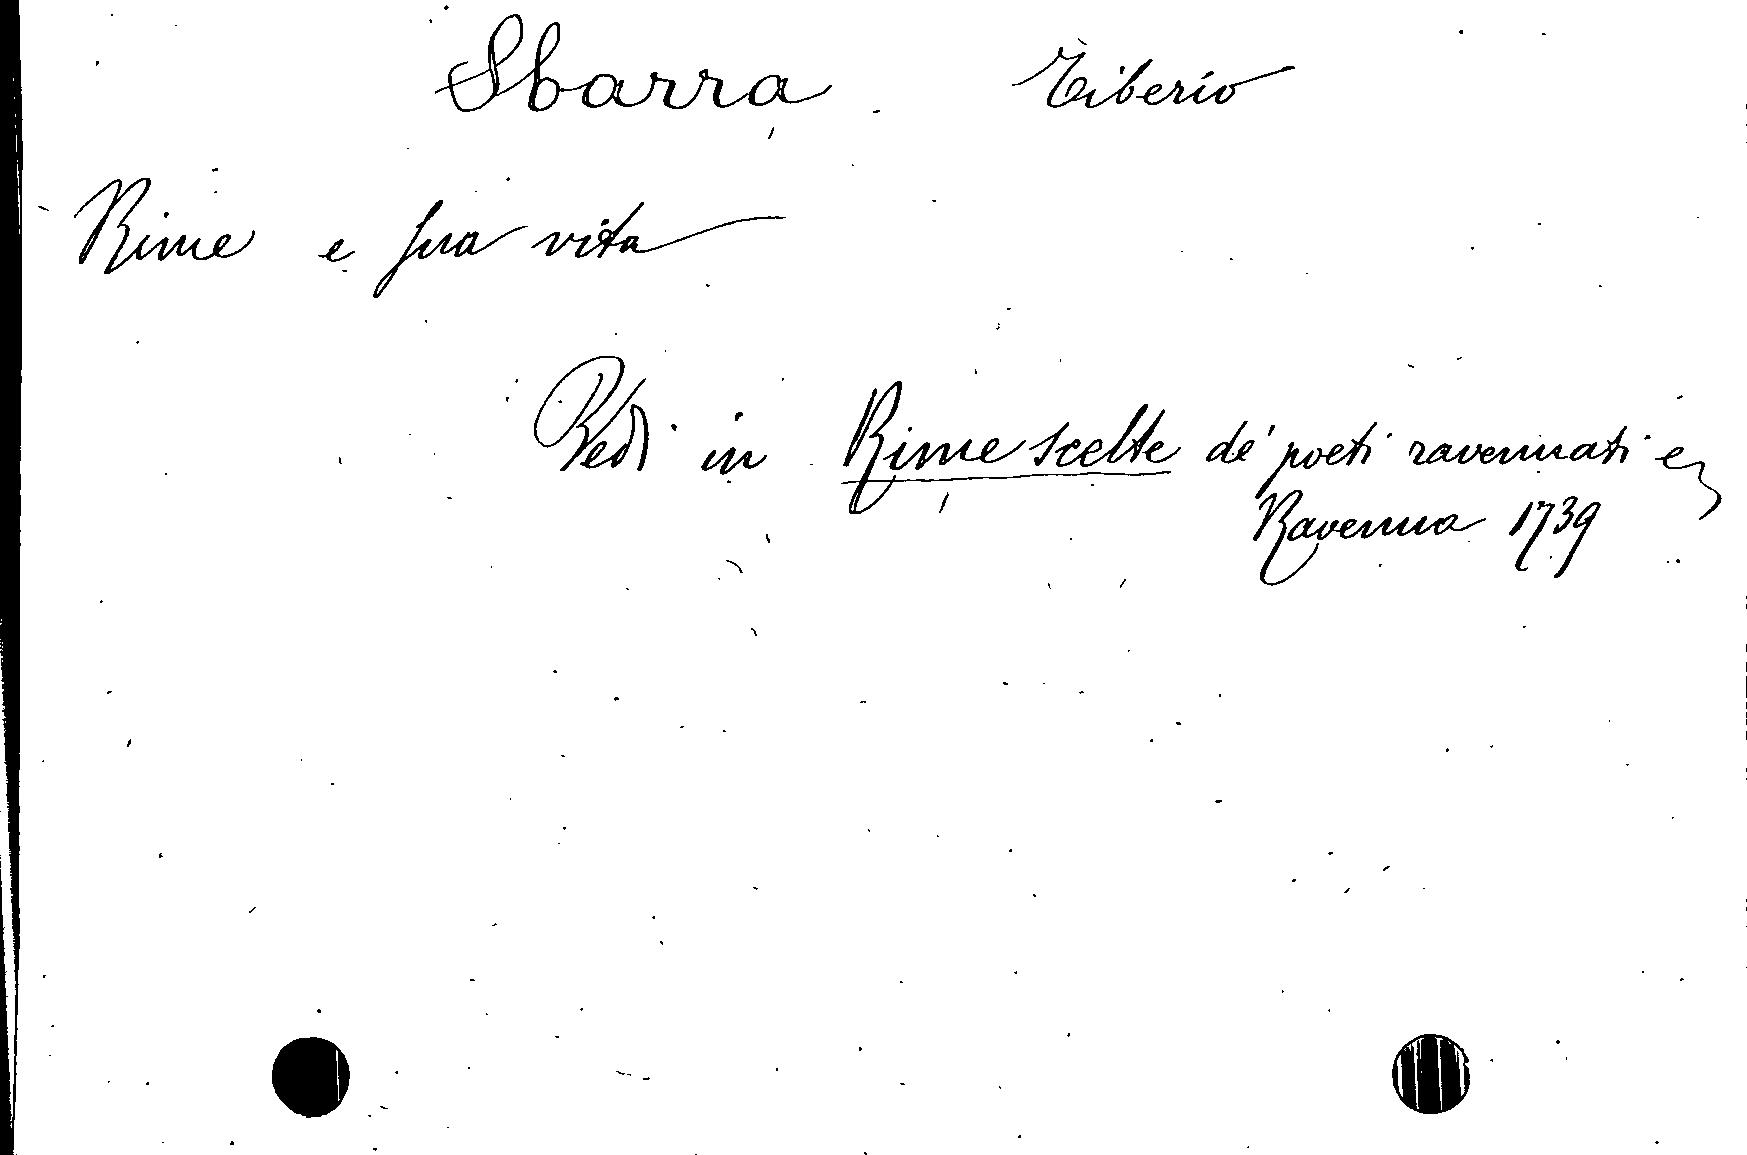 Sbarra Tiberio
Rime e sua vita
Vedi in Rime scelte de' poeti ravennati e
Ravenna 1739